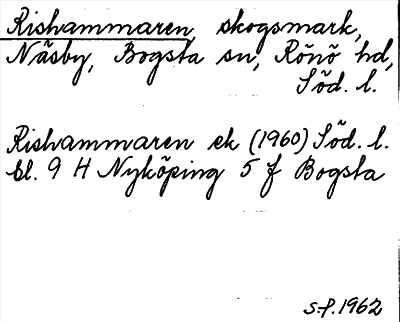 Rishammaren, skogsmark,
Näsby, Bogsta sn, Rönö hd,
Söd. l.
Rishammaren ek (1960) Söd. l.
bl. 9 H Nyköping 5 f Bogsta
S-P. 1962